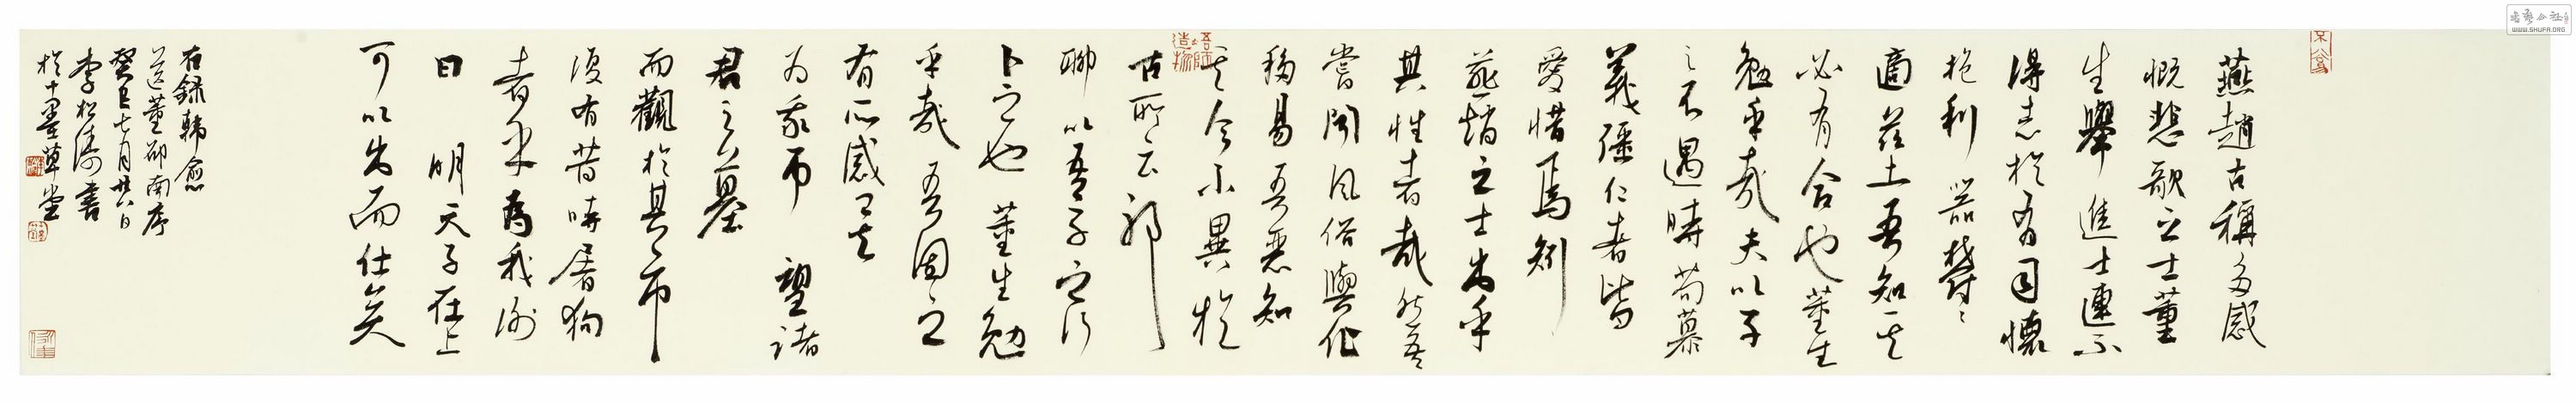 燕趙古稱多感
慨悲歌之士董
生舉進士連不
得志於有司懷
抱利器鬱〻
適茲土吾知其
必有合也董生
勉乎哉夫以子
之不遇時苟慕
義彊仁者皆
愛惜焉矧
燕趙之士出乎
其性者哉然吾
嘗聞風俗與化
移易吾惡知
其今不異於
古所云邪
聊以吾子之行
卜之也董生勉
乎哉吾因之
有所感矣
為我弔望諸
君之墓
而觀於其市
復有昔時屠狗
者乎為我謝
曰明天子在上
可以出而仕矣
右錄韓愈
送董邵南序
癸巳七月廿六日
李松濤書
於十墨草堂
吾師造物
WWW.SHUFA.ORG